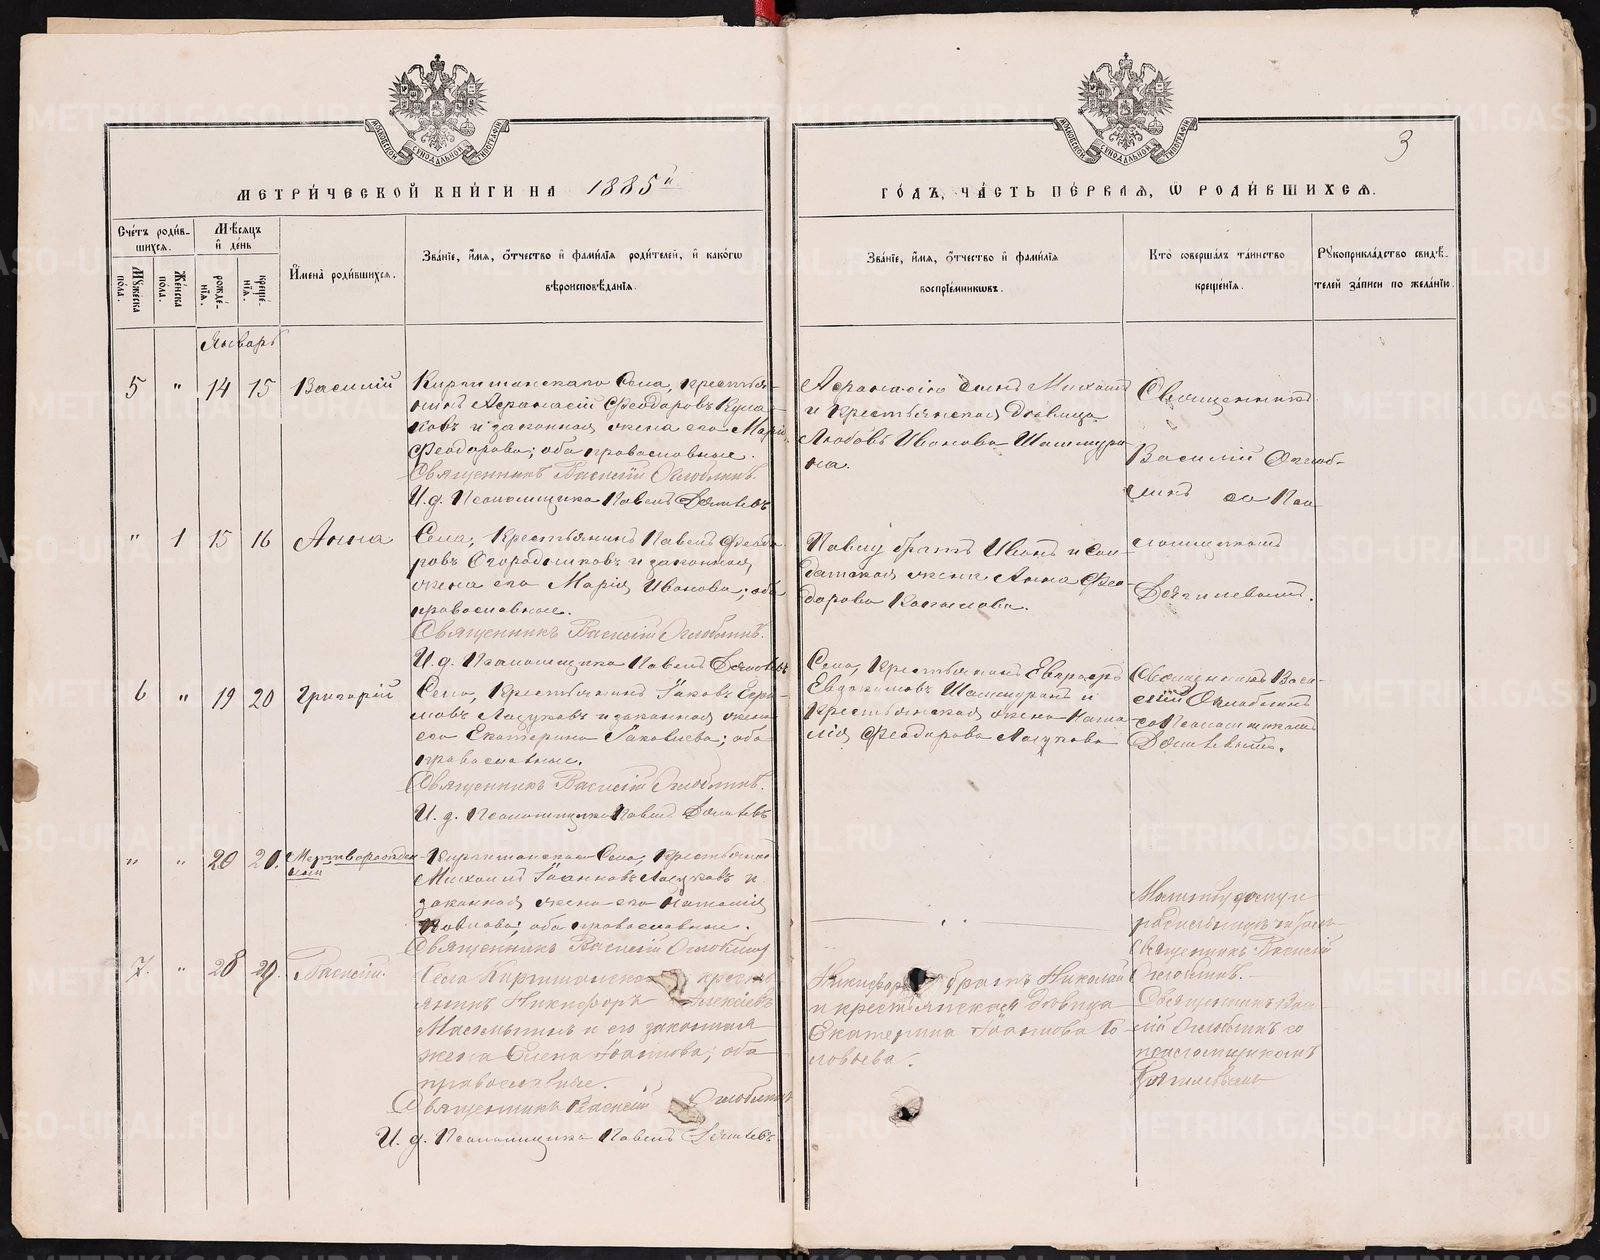 3
МЕТРИ́ЧЕСКОЙ КНИ́ГИ НА 1885й
ГО́ДЪ, ЧА́СТЬ ПЕ́РВАЯ, Ѡ РОДИ́ВШИХСЯ.
Сче́тъ роди́в-
шихся.
Мѣсяцъ
и день
Мужеска
пола.
Женска
пола.
рожде́-
нія.
креще́-
нія.
Имена роди́вшихся.
Зва́ніе, имя, отчество и фами́лія роди́телей, и како́гѡ
вѣроисповѣданія.
Зва́ніе, имя, отчество и фами́лія
воспріе́мникѡвъ.
Кто̀ соверша́лъ та́инство
креще́нія.
Рукоприкла́дство свидѣ́-
телей за́писи по жела́нію.
Январь
5 " 14 15 Василій
Киргишанскаго Села, крестья-
нинъ Афанасій Ѳеодоровъ Кула-
ковъ и законная жена его Марія
Ѳеодорова; оба православные.
Священникъ Василій Оглоблинъ.
И. д. Псаломщика Павелъ
Афанасію сынъ Михаилъ
и крестьянская дѣвица
Любовь Иванова Шашмури-
на.
Священникъ
Василій Оглоб-
линъ со Пса-
ломщикомъ
" 1 15 16 Анна
Села, Крестьянинъ Павелъ Ѳеодо-
ровъ Огородниковъ и законная
жена его Марія Иванова; оба
православные.
Священникъ Василій Оглоблинъ.
И. д. Псаломщика Павелъ
Павлу братъ Иванъ и сол-
датская жена Анна Ѳео-
дорова Копылова.
6 " 19 20 Григорій
Села, Крестьянинъ Іаковъ
Лазуковъ и законная жена
его Екатерина Іаковлева; оба
православные.
Священникъ Василій Оглоблинъ.
И. д. Псаломщика Павелъ
Села, Крестьянинъ Евграфъ
Евдокимовъ Шашмуринъ и
Крестьянская жена Ната-
лія Ѳеодорова Лазукова
Священникъ Васи-
лій Оглоблинъ
со Псаломщикомъ
" " 20 20. Мертворожден-
ный
Киргишанскаго Села, Крестьянинъ
Михаилъ Іоанновъ Лазуковъ и
законная жена его Наталія
Павлова; оба православные.
Священникъ Василій Оглоблинъ
Молитву давалъ
Священникъ Василій
Оглоблинъ.
7. " 28 29. Василій.
Села Киргишанскаго крестья-
нинъ Никифоръ Алексѣевъ
и его законная
жена Елена Іоаннова; оба
православные.
Священникъ Василій Оглоблинъ
И. д. Псаломщика Павелъ
Никифора братъ Николай
и крестьянская дѣвица
Екатерина Іоаннова Го-
ловьева.
Священникъ Васи-
лій Оглоблинъ со
псаломщикомъ
METRIKI.GASO-URAL.RU